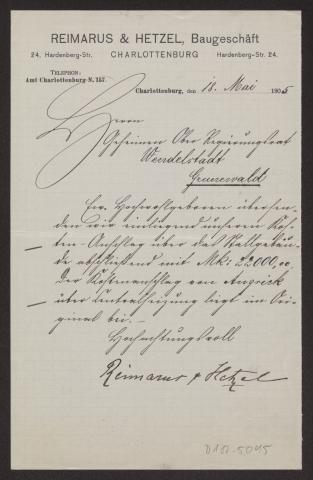 REIMARUS & HETZEL, Baugeschäft
24, Hardenberg-Str. CHARLOTTENBURG Hardenberg-Str. 24.
TELEPHON:
Amt Charlottenburg-N. 157.
Charlottenburg, den 18. Mai 1905
Herrn
Geheimen Ober Regierungsrat
Wendelstadt
Grunewald
Ew. Hochwohlgeboren übersen-
den wir einliegend unseren Kos-
ten-Anschlag über das Stallgebäu-
de abschließend mit Mk: 22000,00.
Der Kostenanschlag von
über Centralheizung liegt im Ori-
ginal bei.-
Hochachtungsvoll
Reimarus & Hetzel
D1